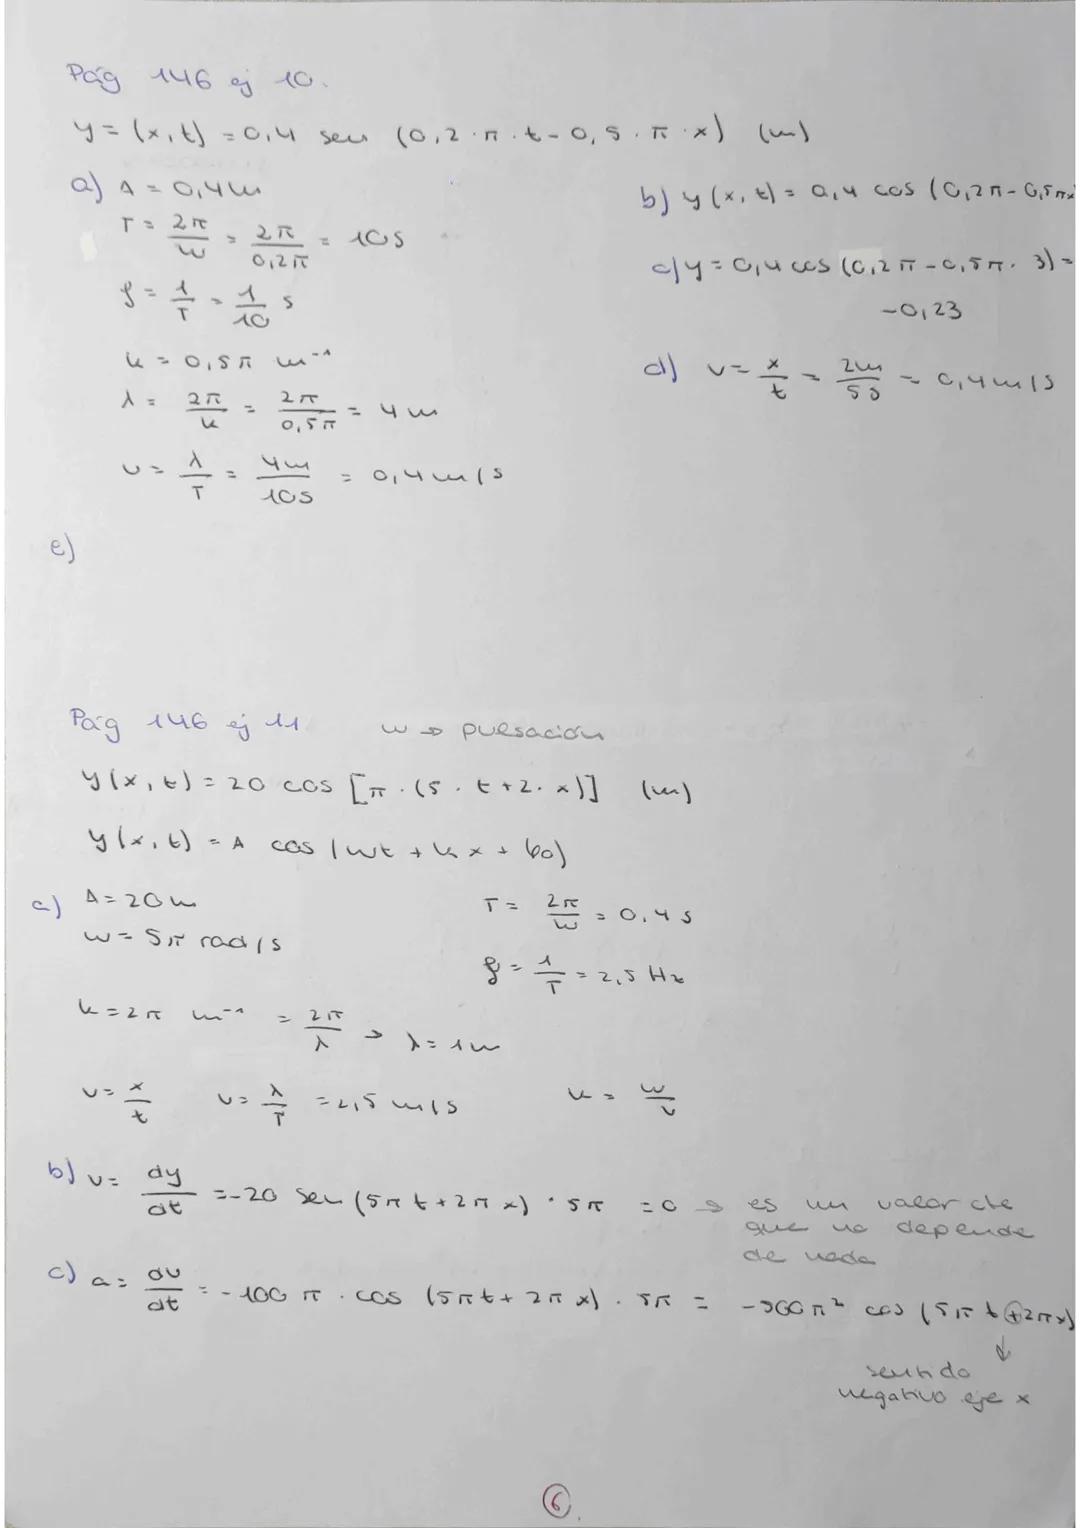 Pág 146 ej 10.
y = (x, t) = 0,4 sen (0,2 · π · t - 0,5 · π · x) (m)
a) A = 0,4 m
T = 2π/w = 2π/0,2π = 10s
f = 1/T = 1/10 s
k = 0,5π m⁻¹
λ = 2π/k = 2π/0,5π = 4 m
v = λ/T = 4m/10s = 0,4 m/s
b) y (x, t) = 0,4 cos (0,2π - 0,5πx
c) y = 0,4 cos (0,2π - 0,5π · 3) =
-0,23
d) v = x/t = 2m/5s = 0,4 m/s
e)
Pág 146 ej 11.
w → pulsación
y(x, t) = 20 cos [π · (5 · t + 2 · x)] (m)
y(x, t) = A cos (wt + kx + ϕo)
a) A = 20 m
w = 5π rad/s
T = 2π/w = 0,4 s
f = 1/T = 2,5 Hz
k = 2π m⁻¹ = 2π/λ → λ = 1m
v = x/t v = λ/T = 2,5 m/s k = w/v
b) v = dy/dt = -20 sen (5πt + 2πx) · 5π = 0 → es un valor cte
que no depende
de nada
c) a = dv/dt = -100 π · cos (5πt + 2πx) · 5π = -500π² cos (5πt + 2πx)
↓
sentido
negativo eje x
6